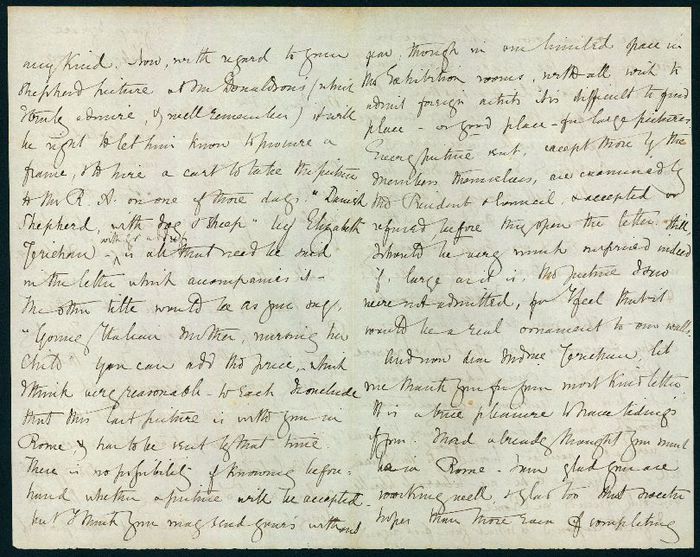 any kind. Now, with regard to your
Shepherd picture at Mr Donaldsons (which
I truly admire, & well remember) it will
be right to let him know to procure a
frame, & to hire a cart to take the picture
to the R. A. on one of those days. "Danish
Shepherd, with dog & sheep" by Elizabeth
Jerichau - with yr address is all that need be said
in the letter which accompanies it -
The other title would be as you say,
"Young Italian Mother, nursing her
Child You can add the price, which
I think very reasonable - to each I conclude
that this last picture is with you in
Rome, & has to be sent by that time.
There is no possibility of knowing before-
hand whether a picture will be accepted.
but I think you may send yours without
fear, though in our limited space in
the Exhibition rooms, with all wish to
admit foreign artists it is difficult to find
place - or good place - for large pictures
Every picture sent, except those by the
Members themselves, are examined by
the President & Council & accepted or
refused before they open the letter. Still,
I should be very much surprised indeed
if, large as it is, the picture I saw
were not admitted, for I feel that it
would be a real ornament to our walls.
And now dear Madme Jerichau, let
me thank you for your most kind letter
It is a true pleasure to have tidings
of you. I had already thought you must
be in Rome - I am glad you are
working well, & glad too that
hopes than more of completing